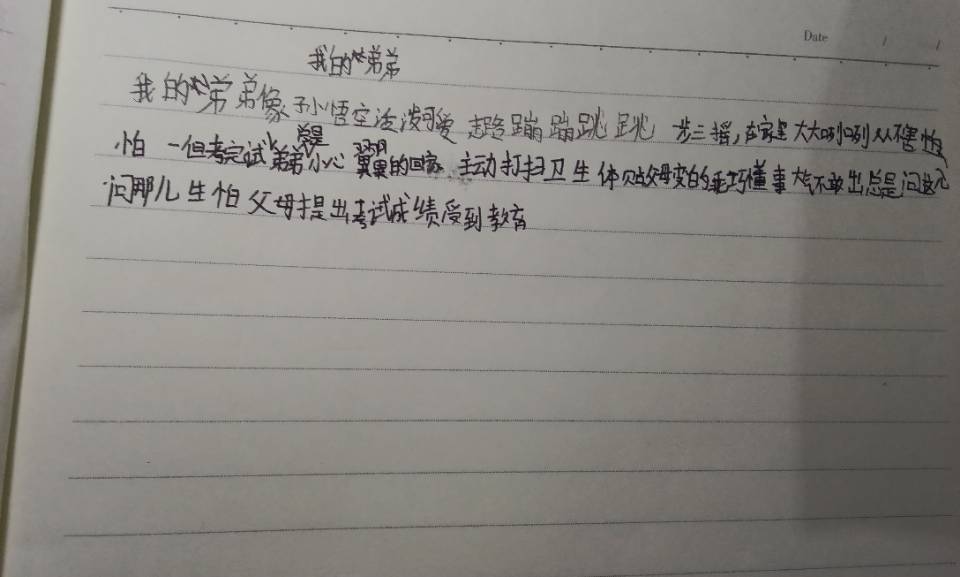 Date / /
我的弟弟
我的弟弟像孙小悟空活泼可爱 走路蹦蹦跳跳 一步三摇,在家里大大咧咧从不害怕
怕 一但考完试弟弟总是小心翼翼的回家 主动打扫卫生 体贴父母变的乖巧懂事 大气不敢出总是问这儿
问那儿生怕父母提出考试成绩受到教育